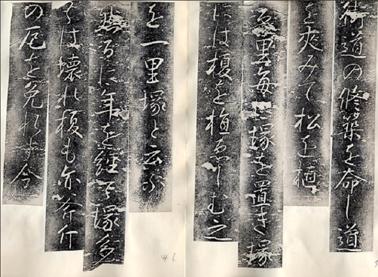 街道の修築を命し道
を夾みて松を植
ゑ里毎に塚を置き塚
には榎を植ゑしむ之
を一里塚と云ふ
然るに年を經て塚多
くは壞れ榎も亦斧斤
の厄を免れす今